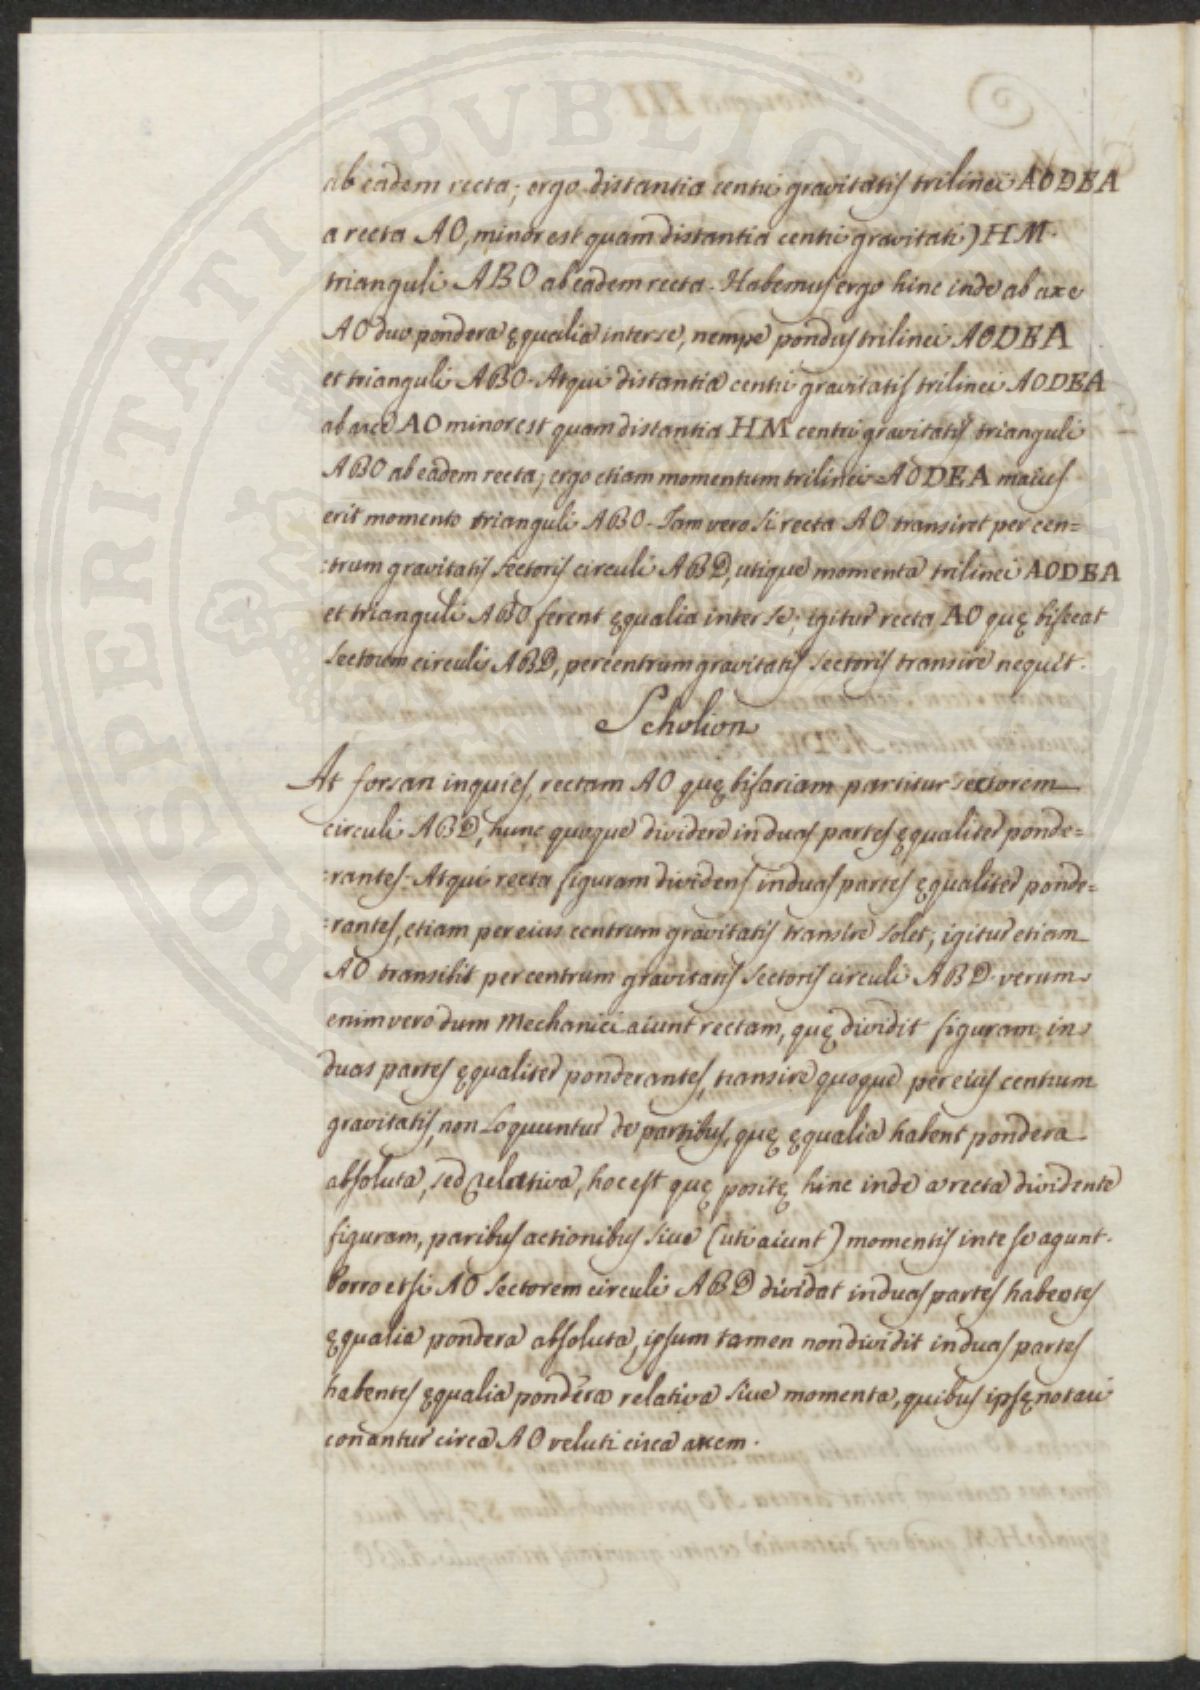 ab eadem recta; ergo distantia centri gravitatis trilinei AODEA
a recta AO, minor est quam distantia centri gravitatis HM
trianguli ABO ab eadem recta. Habemus ergo hinc inde ab axe
AO duo pondera ęqualia inter se, nempe pondus trilinei AODEA
et trianguli ABO. Atqui distantia centri gravitatis trilinei AODEA
ab axe AO minor est quam distantia HM centri gravitatis trianguli
ABO ab eadem recta; ergo etiam momentum trilinei AODEA maius
erit momento trianguli ABO. Iam vero si recta AO transiret per cen=
=trum gravitatis sectoris circuli ABD, utique momenta trilinei AODEA
et trianguli ABO forent ęqualia inter se; igitur recta AO quę bisecat
sectorem circuli ABD, per centrum gravitatis sectoris transire nequit.
Scholion
At forsan inquies, rectam AO quę bifariam partitur sectorem
circuli ABD, hunc quoque dividere in duas partes ęqualiter ponde=
=rantes. Atqui recta figuram dividens in duas partes ęqualiter ponde=
=rantes, etiam per eius centrum gravitatis transire solet; igitur etiam
AO transibit per centrum gravitatis sectoris circuli ABD. verum
enimvero dum Mechanici aiunt rectam, quę dividit figuram in
duas partes ęqualiter ponderantes, transire quoque per eius centrum
gravitatis, non Loquuntur de partibus, quę ęqualia habent pondera
absoluta, sed relativa, hoc est quę positę hinc inde a recta dividente
figuram, paribus actionibus sive (uti aiunt) momentis inte se agunt.
Porro etsi AO sectorem circuli ABD dividat in duas partes habentes
ęqualia pondera absoluta, ipsum tamen non dividit in duas partes
habentes ęqualia pondera relativa sive momenta, quibus ipsę rotari
conantur circa AO veluti circa axem.
PROSPERITATI PUBLICAE